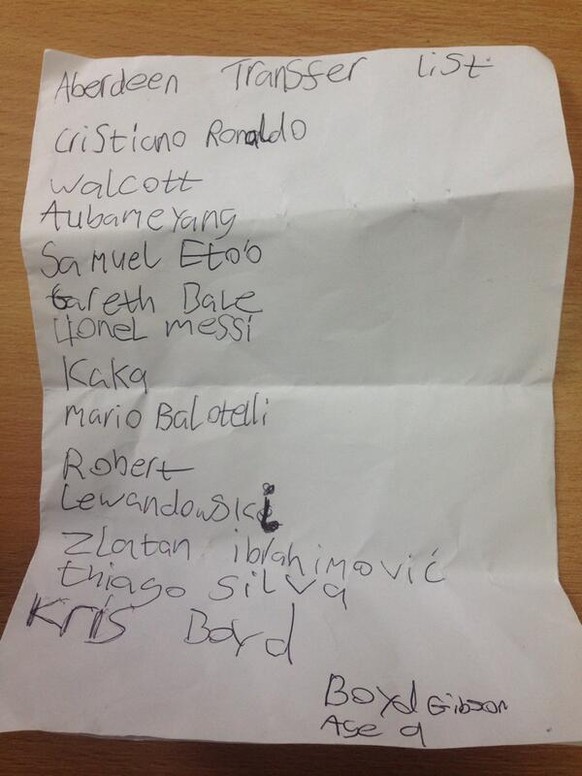 Aberdeen Transfer list
Cristiano Ronaldo
Walcott
Aubameyang
Samuel Eto'o
Gareth Bale
Lionel messi
Kaka
Mario Balotelli
Robert
Lewandowski
Zlatan ibrahimović
thiago silva
Kris Boyd
Boyd Gibson
Age 9